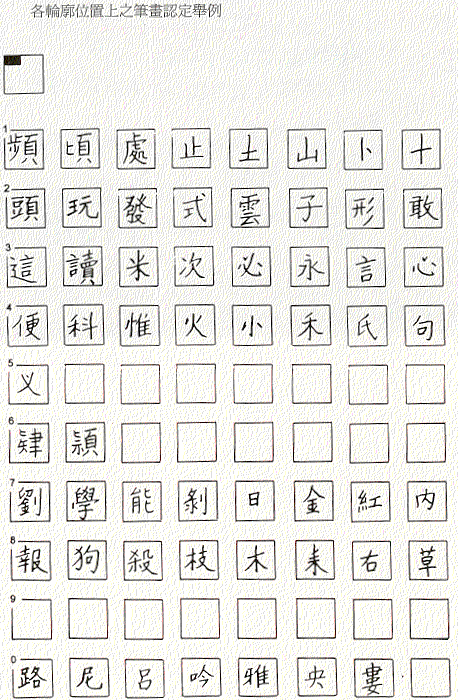 各輪廓位置上之筆畫認定舉例
1 頻 頃 處 止 土 山 卜 十
2 頭 玩 發 式 雲 子 形 敢
3 這 讀 米 次 必 永 言 心
4 便 科 惟 火 小 禾 氏 句
5 义
6 肄
7 劉 學 能 剝 日 金 紅 內
8 報 狗 殺 枝 木 耒 右 草
9
0 路 尼 呂 吟 雅 央 婁